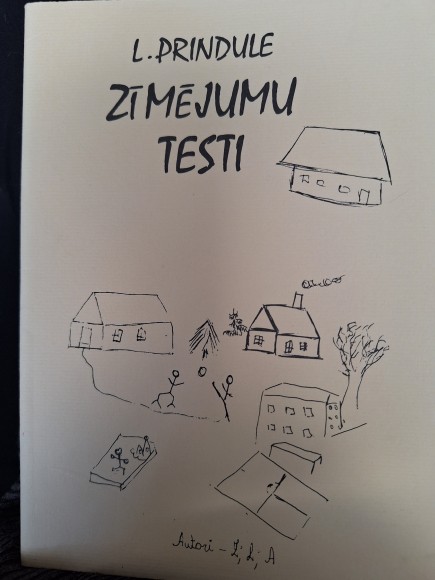 L. PRINDULE
ZĪMĒJUMU
TESTI
Autori -